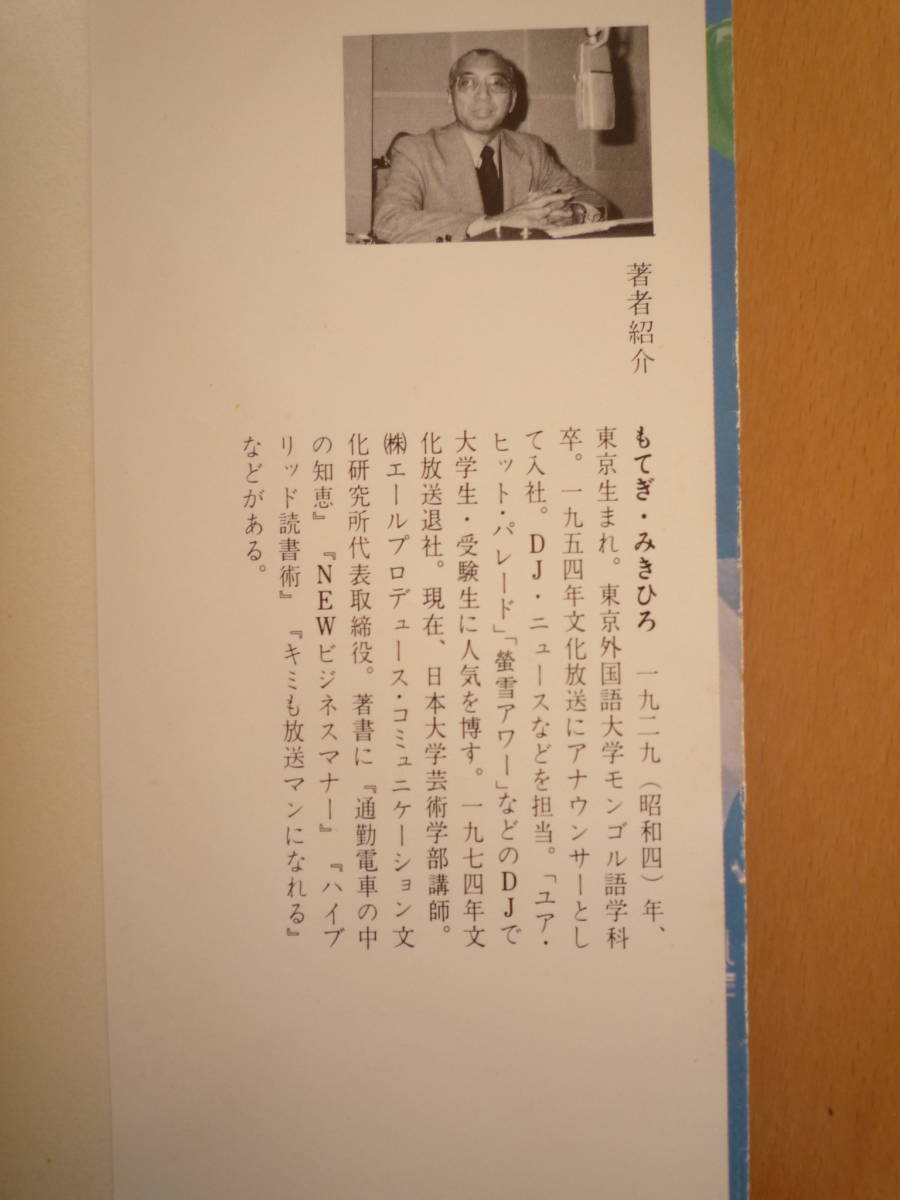 著者紹介
もてぎ・みきひろ　一九二九（昭和四）年、
東京生まれ。東京外国語大学モンゴル語学科
卒。一九五四年文化放送にアナウンサーとし
て入社。DJ・ニュースなどを担当。「ユア・
ヒット・パレード」「螢雪アワー」などのDJで
大学生・受験生に人気を博す。一九七四年文
化放送退社。現在、日本大学芸術学部講師。
㈱エールプロデュース・コミュニケーション文
化研究所代表取締役。著書に『通勤電車の中
の知恵』『NEWビジネスマナー』『ハイブ
リッド読書術』『キミも放送マンになれる』
などがある。